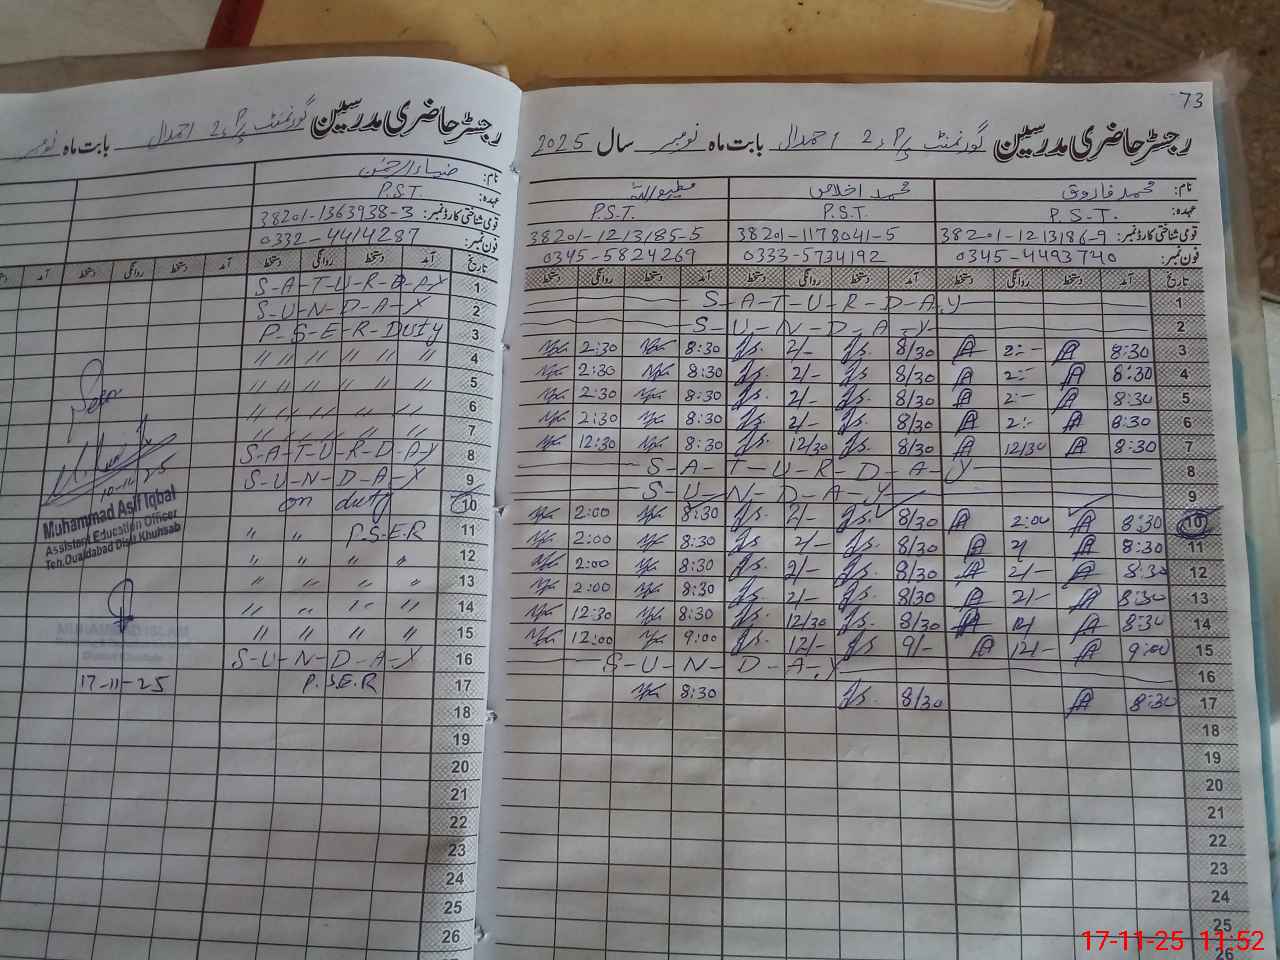 73
رجسٹر حاضری مدرسین گورنمنٹ P/P 2 احمدال بابت ماہ نومبر سال 2025
نام: محمد فاروق محمد اخلاص مطیع اللہ
عہدہ: P.S.T. P.S.T. P.S.T.
قومی شناختی کارڈ نمبر: 38201-1213186-9 38201-1178041-5 38201-1213185-5
فون نمبر: 0345-4493740 0333-5734192 0345-5824269
تاریخ آمد دستخط روانگی دستخط آمد دستخط روانگی دستخط آمد دستخط روانگی دستخط
1 S-A-T-U-R-D-A-Y
2 S-U-N-D-A-Y
3 8:30 2:- 8/30 2/- 8:30 2:30
4 8:30 2:- 8/30 2/- 8:30 2:30
5 8:30 2:- 8/30 2/- 8:30 2:30
6 8:30 2:- 8/30 2/- 8:30 2:30
7 8:30 12/30 8/30 12/30 8:30 12:30
8 S-A-T-U-R-D-A-Y
9 S-U-N-D-A-Y
10 8:30 2:00 8/30 2/- 8:30 2:00
11 8:30 2/ 8/30 2/- 8:30 2:00
12 8:30 2/- 8/30 2/- 8:30 2:00
13 8:30 2/- 8/30 2/- 8:30 2:00
14 8:30 8/30 12/30 8:30 12:30
15 9:00 12/- 9/- 12/- 9:00 12:00
16 S-U-N-D-A-Y
17 8:30 8/30 8:30
18
19
20
21
22
23
24
25
26
رجسٹر حاضری مدرسین گورنمنٹ P/P 2 احمدال بابت ماہ نومبر
نام: ضیاء الرحمٰن
عہدہ: P.S.T.
قومی شناختی کارڈ نمبر: 38201-1363938-3
فون نمبر: 0332-4414287
تاریخ آمد دستخط روانگی دستخط آمد دستخط روانگی دستخط آمد
1 S-A-T-U-R-D-A-Y
2 S-U-N-D-A-Y
3 P-S-E-R-Duty
4 〃 〃 〃 〃 〃
5 〃 〃 〃 〃 〃
6 〃 〃 〃 〃 〃
7 〃 〃 〃 〃 〃
8 S-A-T-U-R-D-A-Y
9 S-U-N-D-A-Y
10 on duty
11 〃 〃 P-S-E-R
12 〃 〃 〃 〃
13 〃 〃 〃 〃
14 〃 〃 〃 〃
15 〃 〃 〃 〃
16 S-U-N-D-A-Y
17 P.S.E.R
18
19
20
21
22
23
24
25
26
10-11-25
Muhammad Asif Iqbal
Assistant Education Officer
Teh.Quaidabad Distt Khuhsab
MUHAMMAD ISLAM
17-11-25
17-11-25 11:52